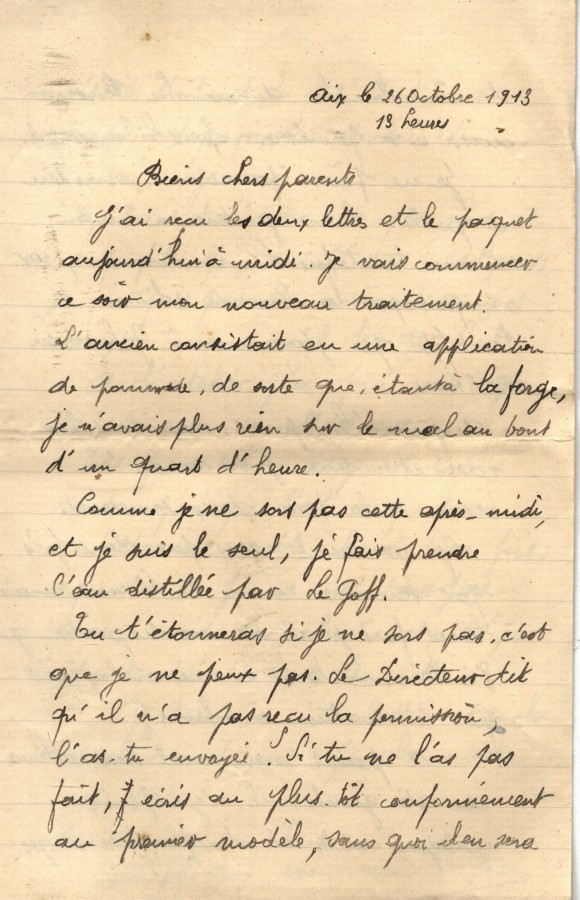 Aix le 26 Octobre 1913
13 heures
Biens chers parents
J'ai reçu les deux lettres et le paquet
aujourd'hui à midi. Je vais commencer
ce soir mon nouveau traitement.
L'ancien consistait en une application
de pommade, de sorte que, étant à la forge,
je n'avais plus rien sur le mal au bout
d'un quart d'heure.
Comme je ne sors pas cette après-midi,
et je suis le seul, je fais prendre
l'eau distillée par Le Goff.
Tu t'étonneras si je ne sors pas, c'est
que je ne peux pas. Le Directeur dit
qu'il n'a pas reçu la permission,
l'as-tu envoyée. Si tu ne l'as pas
fait, écris au plus tôt conformément
au premier modèle, sans quoi il en sera